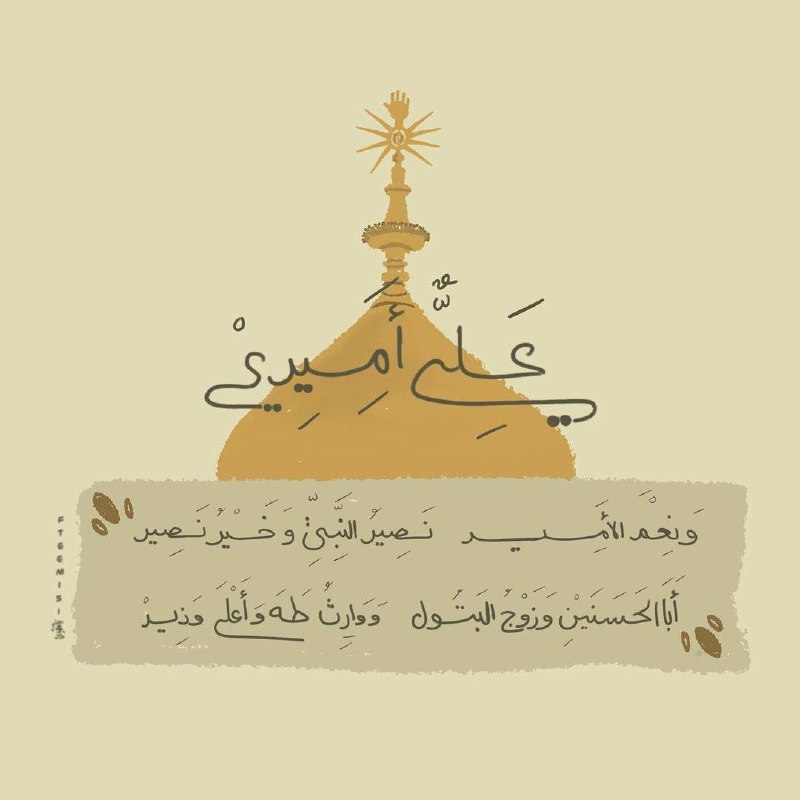 عَلِيٌّ أَمِيرِيْ
وَنِعْمَ الأَمِير نَصِيرُ النَّبِيِّ وَخَيْرُ نَصِير
أَبَا الحَسَنَيْنِ وَزَوْجُ البَتُول وَوَارِثُ طَهَ وَأَعْلَى وَزِيرْ
FTEEMISI